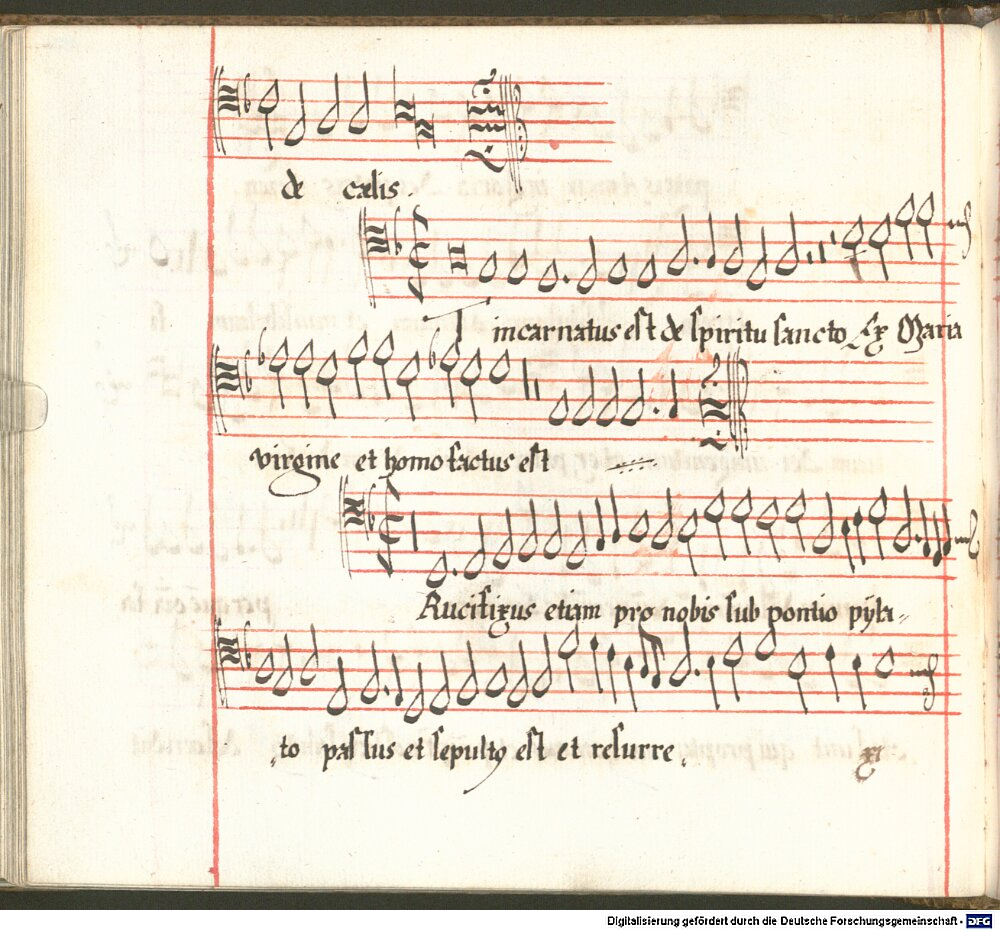 de cælis.
T incarnatus est de spiritu sancto Ex Maria
virgine et homo factus est
Rucifixus etiam pro nobis sub pontio pÿla-
to passus et sepultꝰ est et resurre
xi
Digitalisierung gefördert durch die Deutsche Forschungsgemeinschaft - DFG